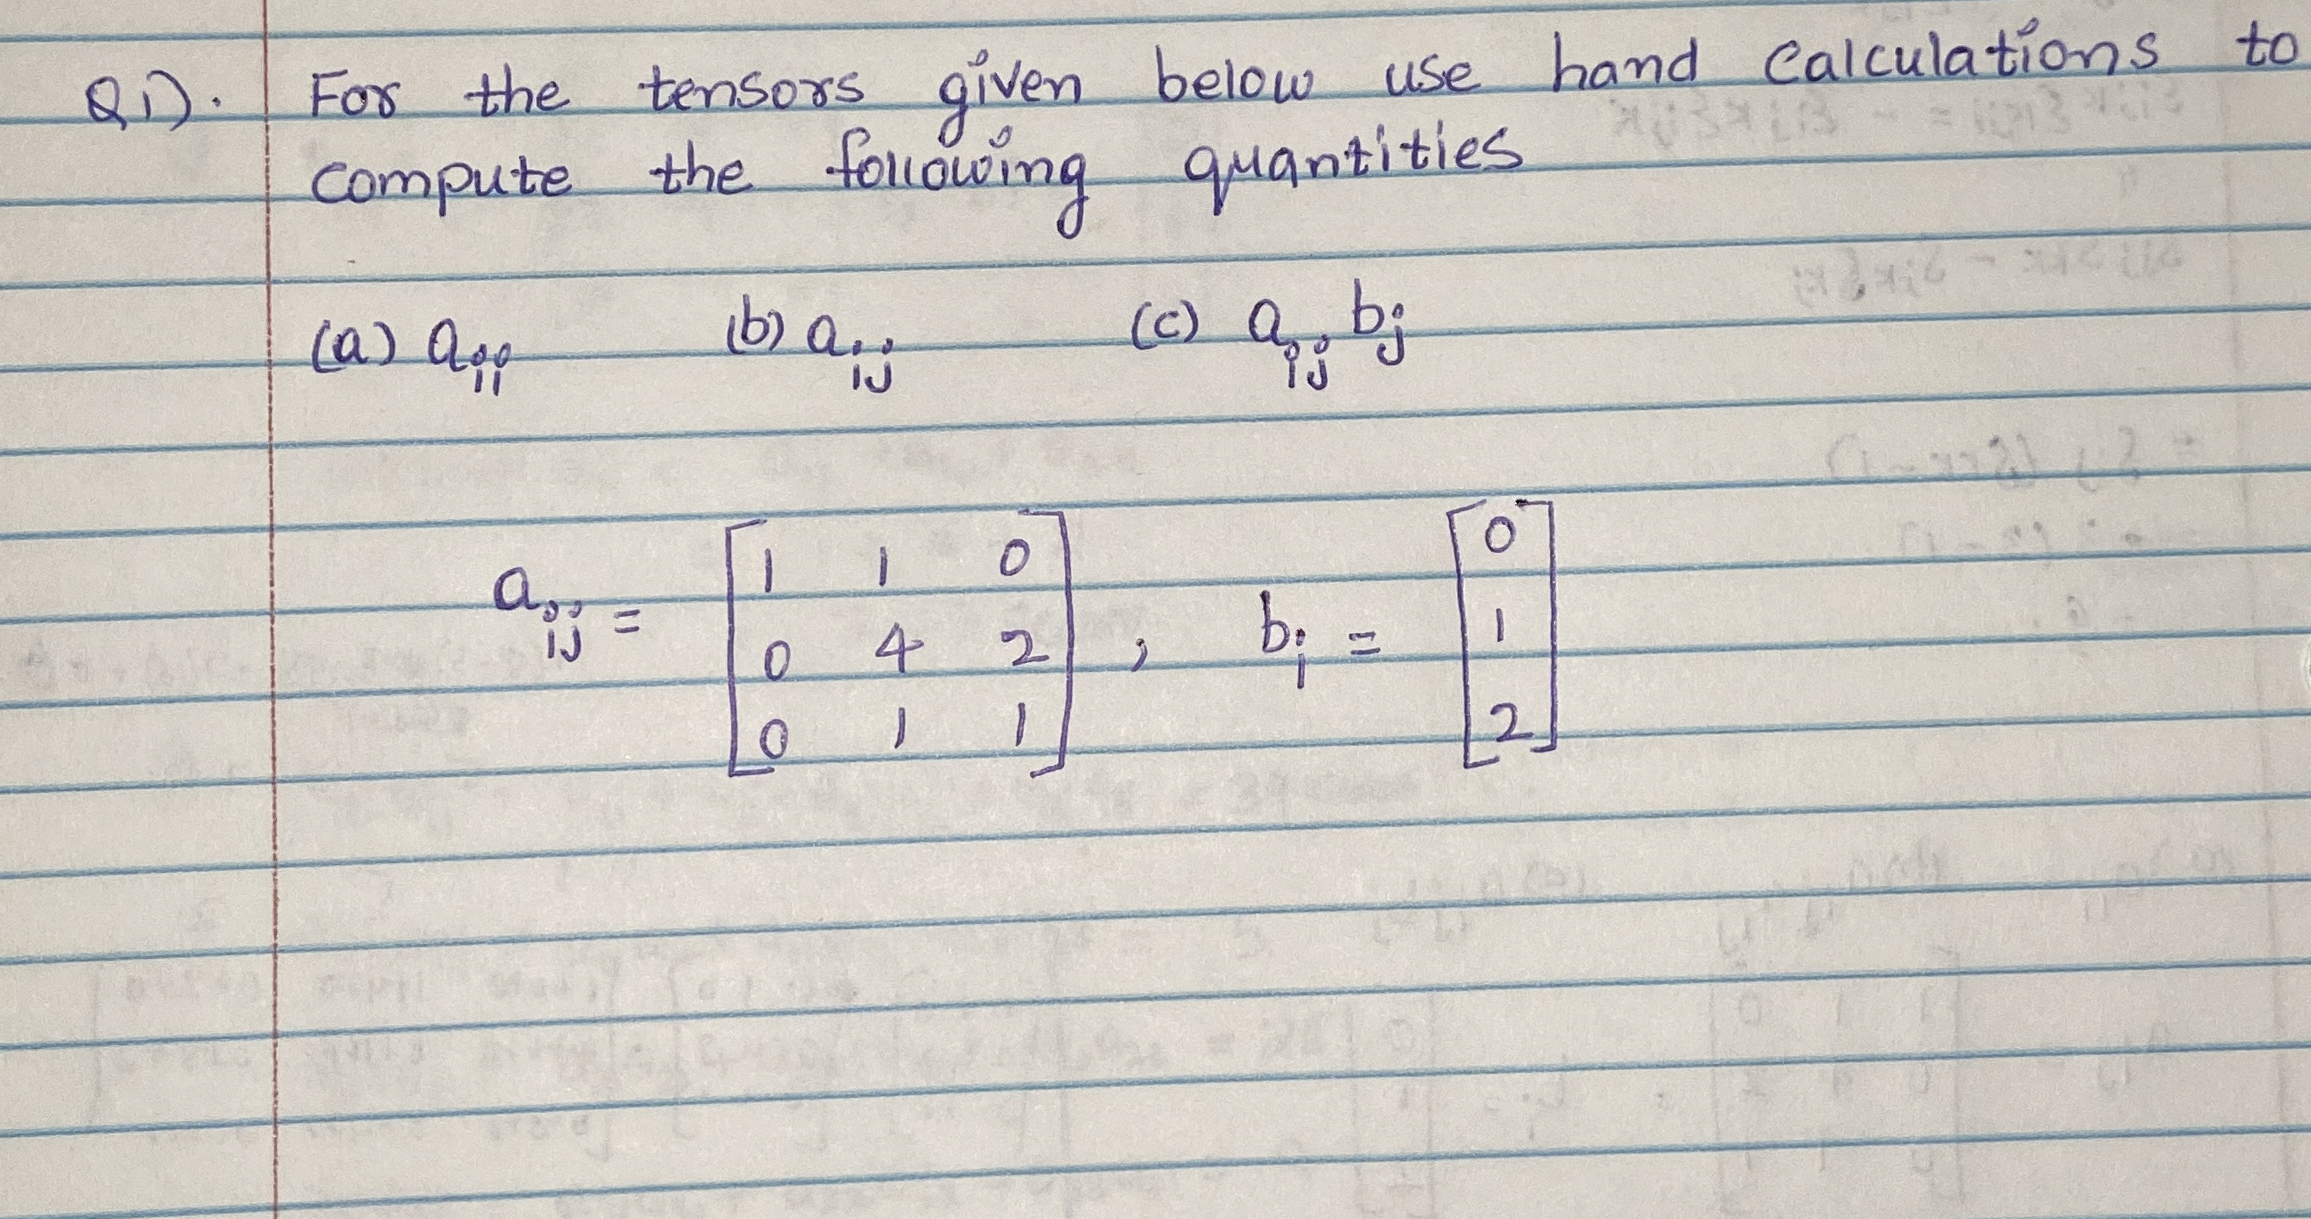 Q1). For the tensors given below use hand calculations to
compute the following quantities
(a) a_ii (b) a_ij (c) a_ij b_j
a_ij = [1 1 0; 0 4 2; 0 1 1] ; b_i = [0; 1; 2]